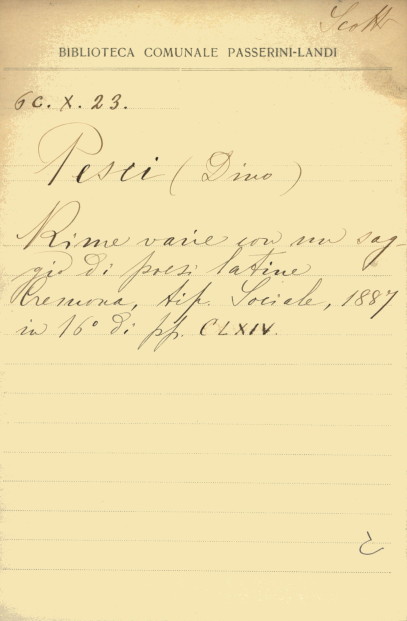 Scotti
BIBLIOTECA COMUNALE PASSERINI-LANDI
6C. X. 23.
Pesci (Dino)
Rime varie con un sag-
gio di poesi latine
Cremona, tip. Sociale, 1887
in 16° di pp. CLXIV.